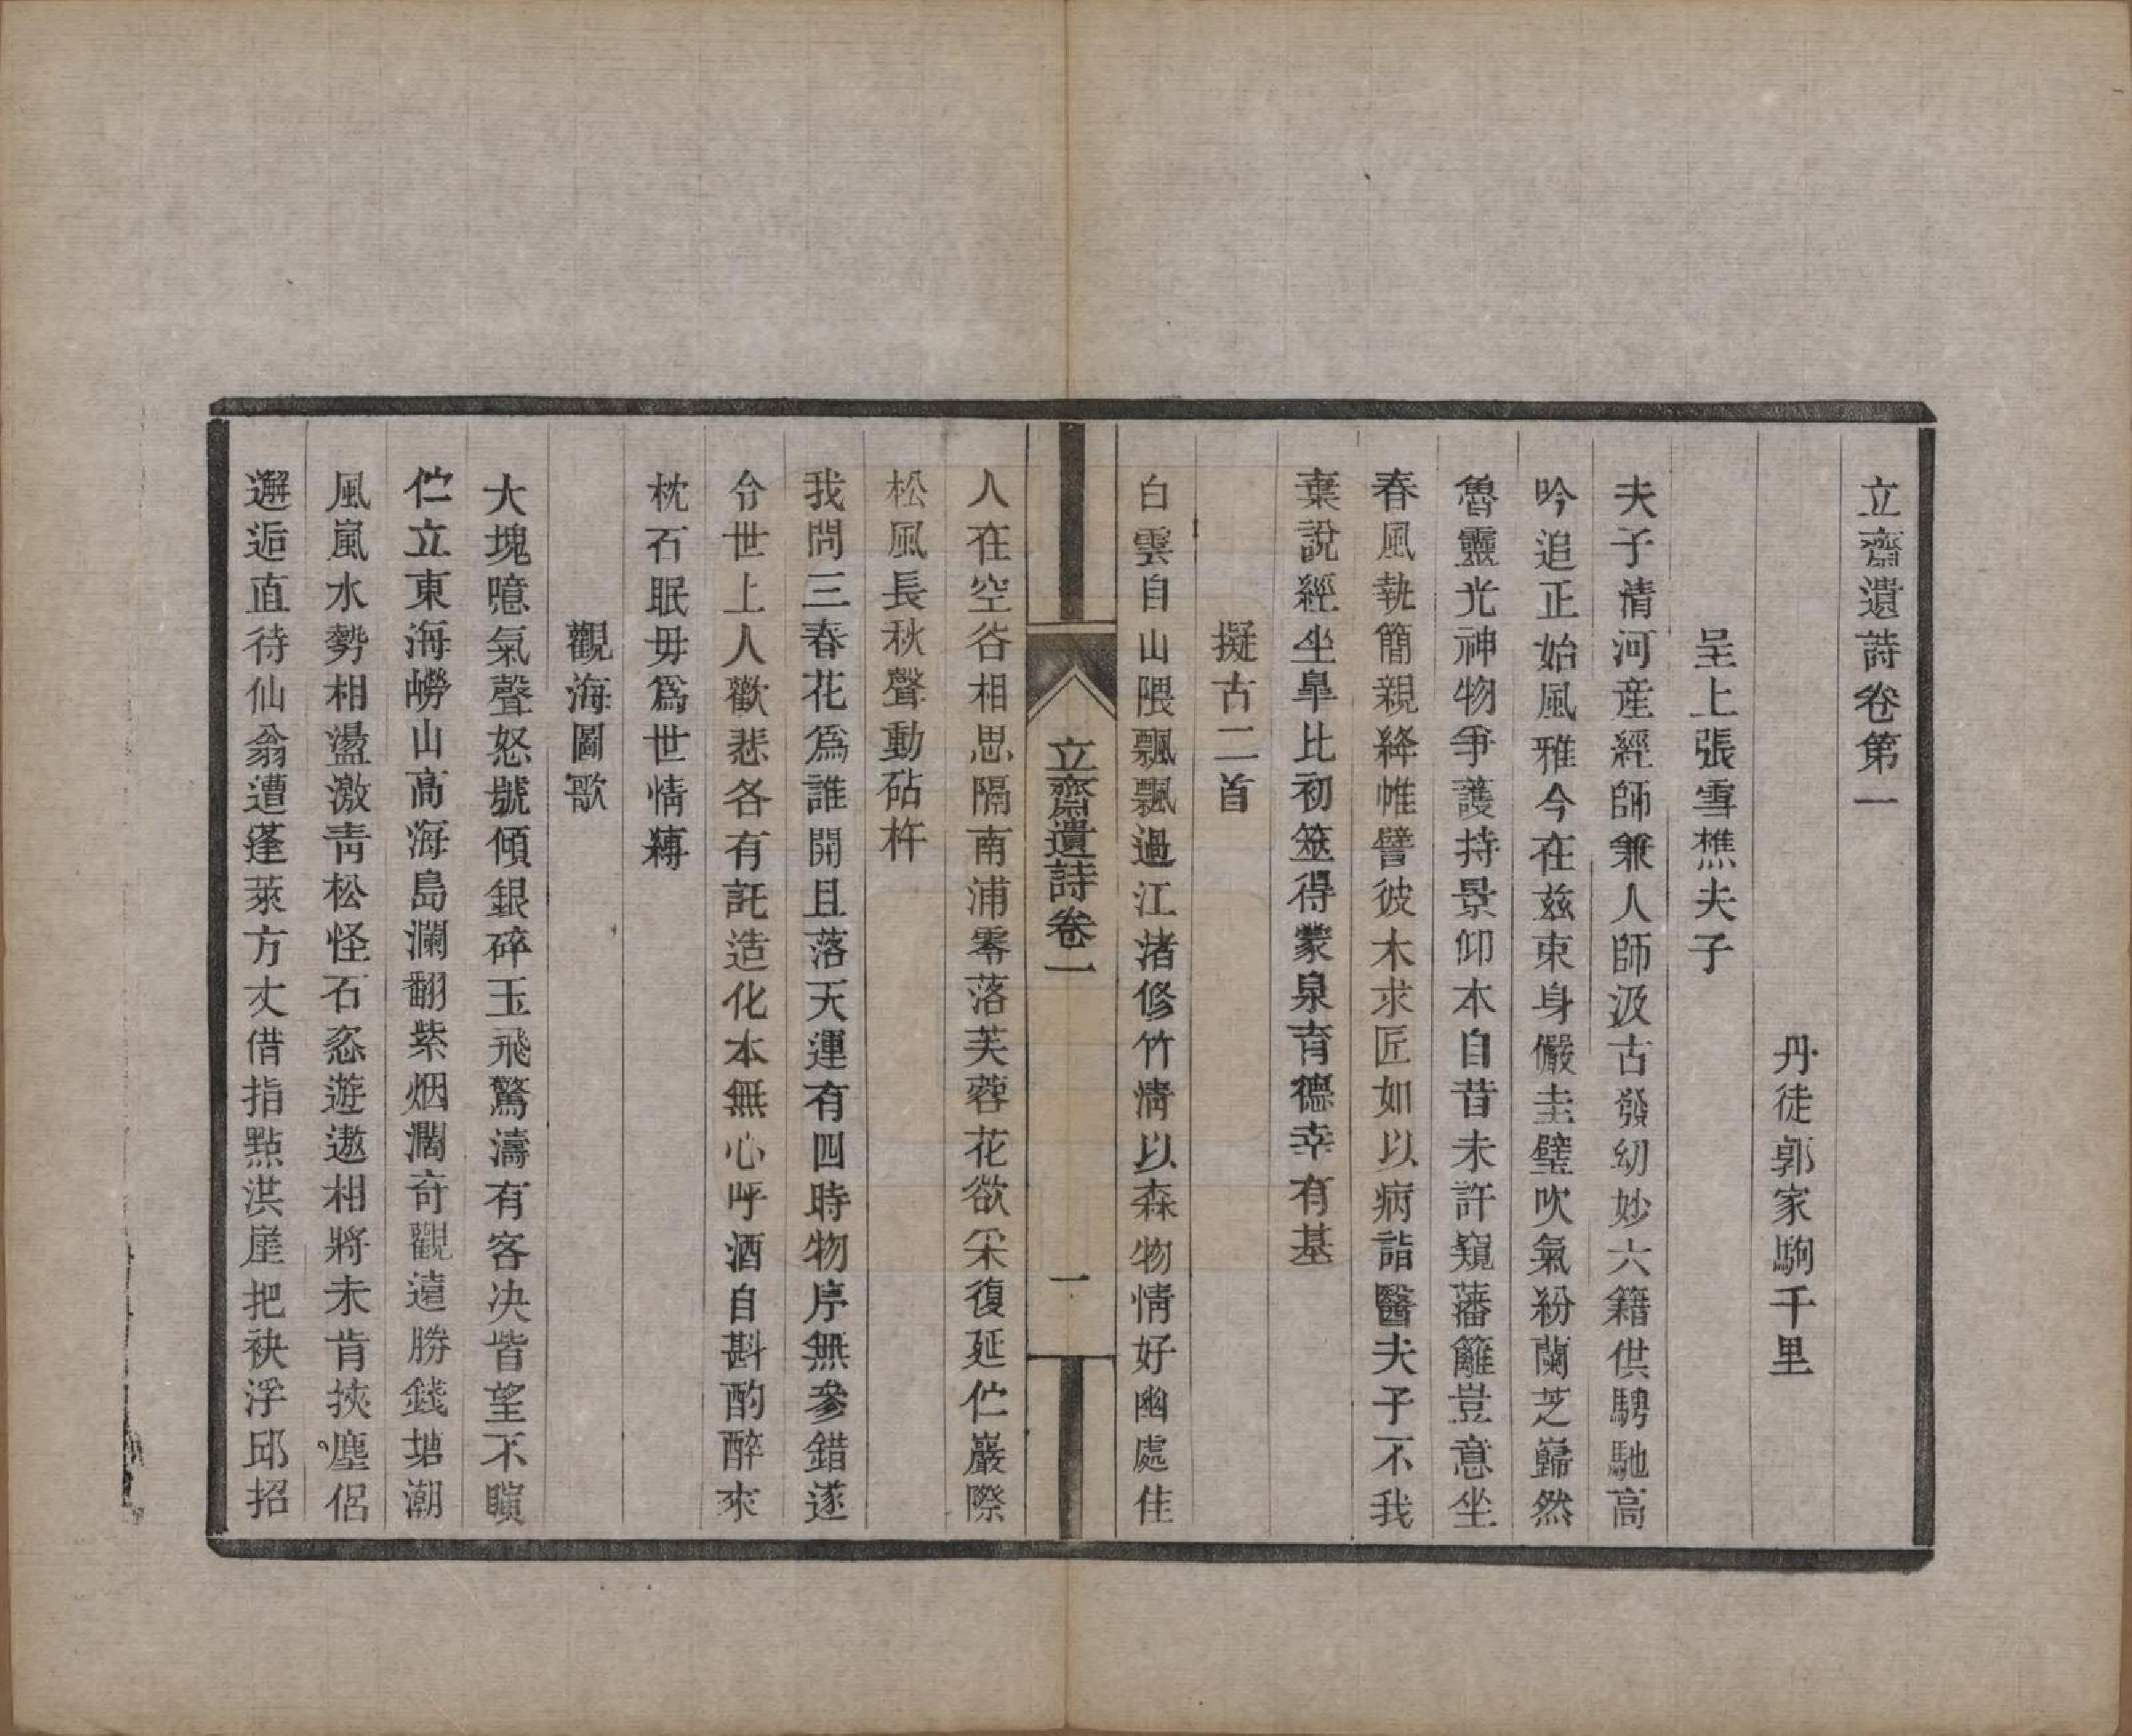 立齋遺詩卷第一
丹徒郭家駒千里
呈上張雪樵夫子
夫子清河産經師兼人師汲古發幼妙六籍供騁馳高
吟追正始風雅今在兹束身儼圭璧吹氣紛蘭芝巋然
魯靈光神物爭護持景仰本自昔未許窺藩籬豈意坐
春風執簡親絳帷譬彼木求匠如以病詣醫夫子不我
棄說經坐臯比初筮得蒙泉育德幸有基
擬古二首
白雲自山隈飄飄過江渚修竹情以森物情好幽處佳
立齋遺詩卷一
一
人在空谷相思隔南浦零落芙蓉花欲采復延伫巖際
松風長秋聲動砧杵
我問三春花爲誰開且落天運有四時物序無參錯遂
令世上人歡悲各有託造化本無心呼酒自斟酌醉來
枕石眠毋爲世情縛
觀海圖歌
大塊噫氣聲怒號傾銀碎玉飛驚濤有客决眥望不瞚
伫立東海嶗山高海島瀾翻紫烟濶奇觀遠勝錢塘潮
風嵐水勢相盪激靑松怪石恣遊遨相將未肯挾塵侶
邂逅直待仙翁遭蓬萊方丈借指點洪崖把袂浮邱招